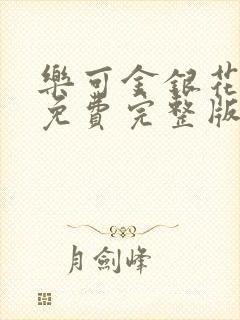 樂可金銀花
免費完整版
月劍峰